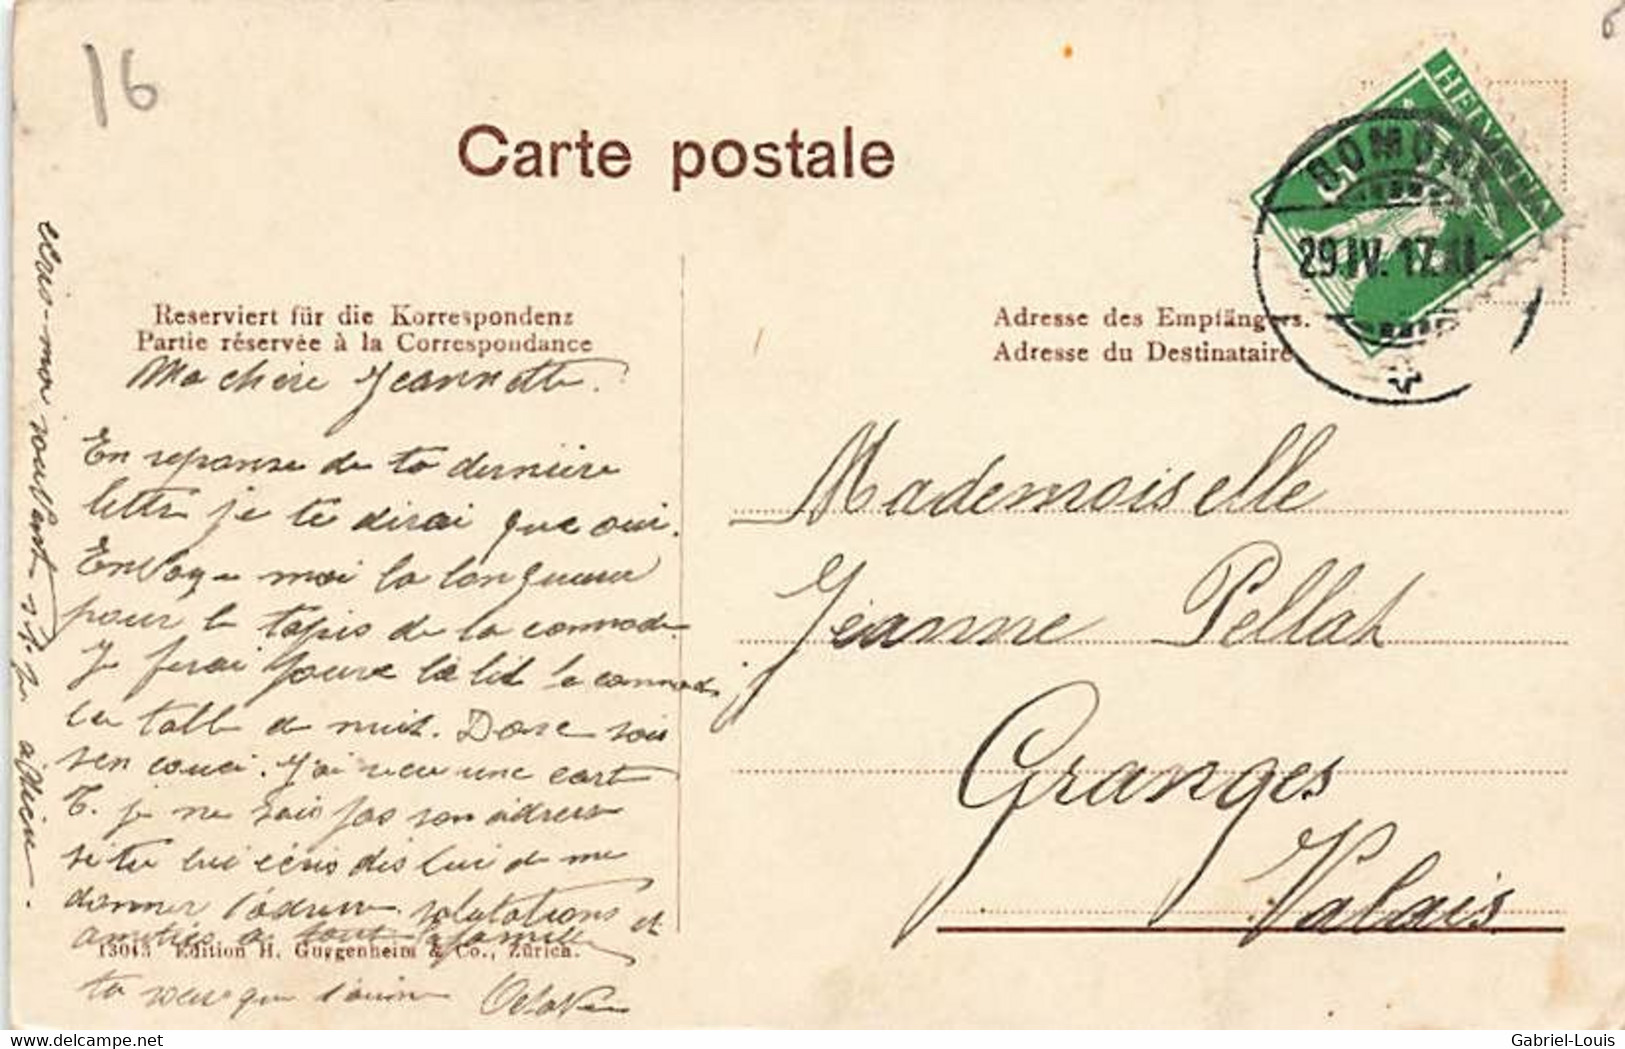 16
Carte postale
HELVETIA
ROMONT
29.IV.17.XI-
Reserviert für die Korrespondenz
Partie réservée à la Correspondance
Adresse des Empfängers.
Adresse du Destinataire
Ma chère Jeannette.
En reponse de ta dernière
lettre je te dirai que oui.
Envoye moi la longueur
pour le tapis de la commode.
Je ferai pour le lit la commode
la table de nuit. sois
sen couci. J'ai recu une carte
T. je ne sais pas son adresse
si tu lui écris dis lui de me
donner l'adresse. salutations et
amitiés a tout la famille
ta qui t'aime Octavie
ecris-moi souvent
Mademoiselle
Jeanne Pellat
Granges
Valais.
13043 Edition H. Guggenheim & Co., Zürich.
delcampe.net
Gabriel-Louis